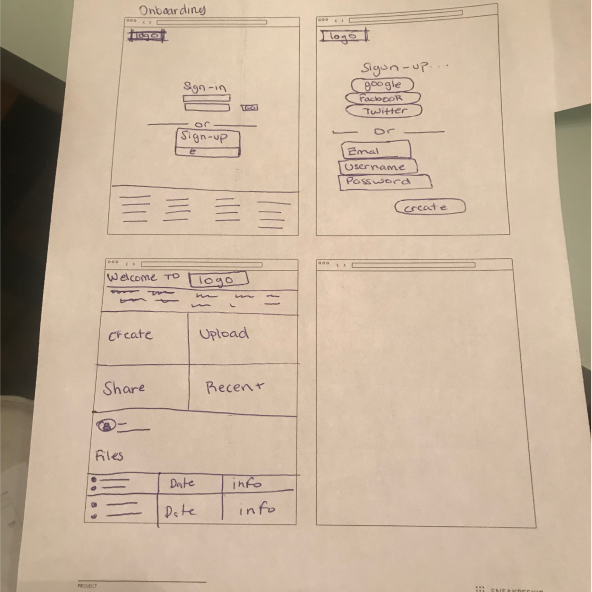 Onboarding
logo
Sign-in
or
Sign-up
e
logo
Sigun-up...
google
Facbook
Twitter
Or
Emal
Username
Password
create
Welcome To logo
Create Upload
Share Recent
Files
Date info
Date info
PROJECT